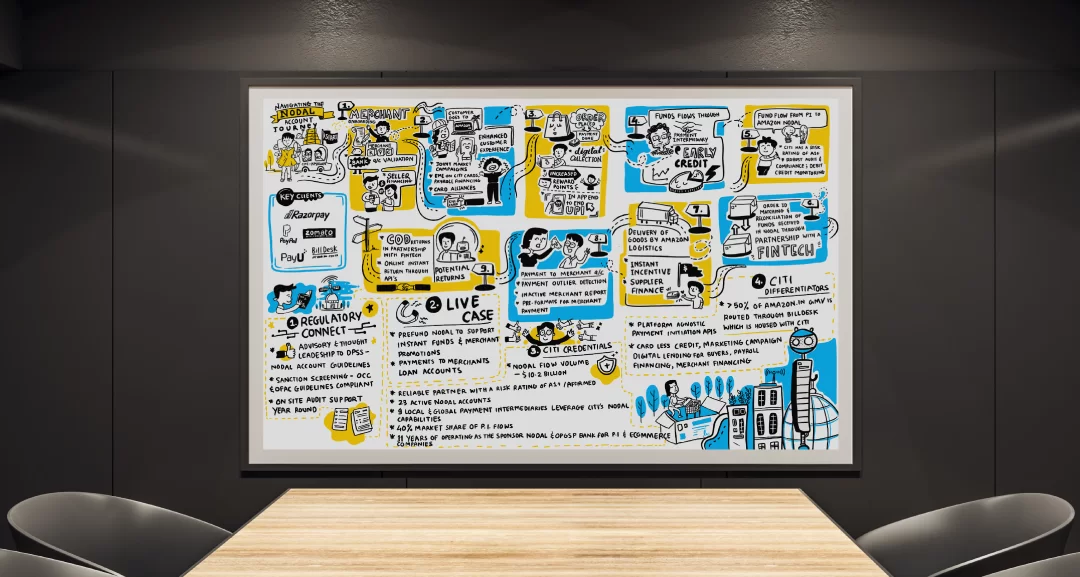 NAVIGATING THE
NODAL
ACCOUNT
JOURNEY
1.
MERCHANT
ONBOARDING
A/C VALIDATION
SELLER
FINANCING
2.
CUSTOMER
GOES TO
AMAZON
ENHANCED
CUSTOMER
EXPERIENCE
* JOINT MARKET
CAMPAIGNS
* EMI ON CITI CARDS
PAYROLL FINANCING
* CARD ALLIANCES
3.
ORDER
PLACED
PAYMENT
DONE
digital
COLLECTION
INCREASED
REWARD
POINTS &
IN APP END
TO END
UPI
4.
FUNDS FLOWS THROUGH
PAYMENT
INTERMEDIARY
EARLY
CREDIT
5.
FUND FLOW FROM PI TO
AMAZON NODAL
* CITI HAS A RISK
RATING OF AS1
* ROBUST AUDIT &
COMPLIANCE & DEBIT
CREDIT MONITORING
KEY CLIENTS
Razorpay
PayPal
zomato
PayU
BillDesk
* COD RETURNS
IN PARTNERSHIP
WITH FINTECH
* ONLINE INSTANT
RETURN THROUGH
API's
POTENTIAL
RETURNS
9.
8.
* PAYMENT TO MERCHANT A/C
* PAYMENT OUTLIER DETECTION
* INACTIVE MERCHANT REPORT
* PRE-FORMATS FOR MERCHANT
PAYMENT
7.
DELIVERY OF
GOODS BY AMAZON
LOGISTICS
* INSTANT
INCENTIVE
* SUPPLIER
FINANCE
6.
ORDER ID
MATCHING &
RECONCILIATION OF
FUNDS RECEIVED
IN NODAL THROUGH
PARTNERSHIP WITH A
FINTECH
1 REGULATORY
CONNECT
* ADVISORY & THOUGHT
LEADERSHIP TO DPSS -
NODAL ACCOUNT GUIDELINES
* SANCTION SCREENING - OCC
& OFAC GUIDELINES COMPLIANT
* ON SITE AUDIT SUPPORT
YEAR ROUND
2. LIVE
CASE
* PREFUND NODAL TO SUPPORT
INSTANT FUNDS & MERCHANT
PROMOTIONS
* PAYMENTS TO MERCHANTS
LOAN ACCOUNTS
3. CITI CREDENTIALS
* NODAL FLOW VOLUME
- $10.2 BILLION
* RELIABLE PARTNER WITH A RISK RATING OF AS1 / AFFIRMED
* 23 ACTIVE NODAL ACCOUNTS
* 9 LOCAL & GLOBAL PAYMENT INTERMEDIARIES LEVERAGE CITI'S NODAL
CAPABILITIES
* 40% MARKET SHARE OF P.I. FLOWS
* 11 YEARS OF OPERATING AS THE SPONSOR NODAL & OPGSP BANK FOR P.I & ECOMMERCE
COMPANIES
4. CITI
DIFFERENTIATORS
* >50% OF AMAZON.IN GMV IS
ROUTED THROUGH BILLDESK
WHICH IS HOUSED WITH CITI
* PLATFORM AGNOSTIC
PAYMENT INITIATION APIS
* CARD LESS CREDIT, MARKETING CAMPAIGN
DIGITAL LENDING FOR BUYERS, PAYROLL
FINANCING, MERCHANT FINANCING